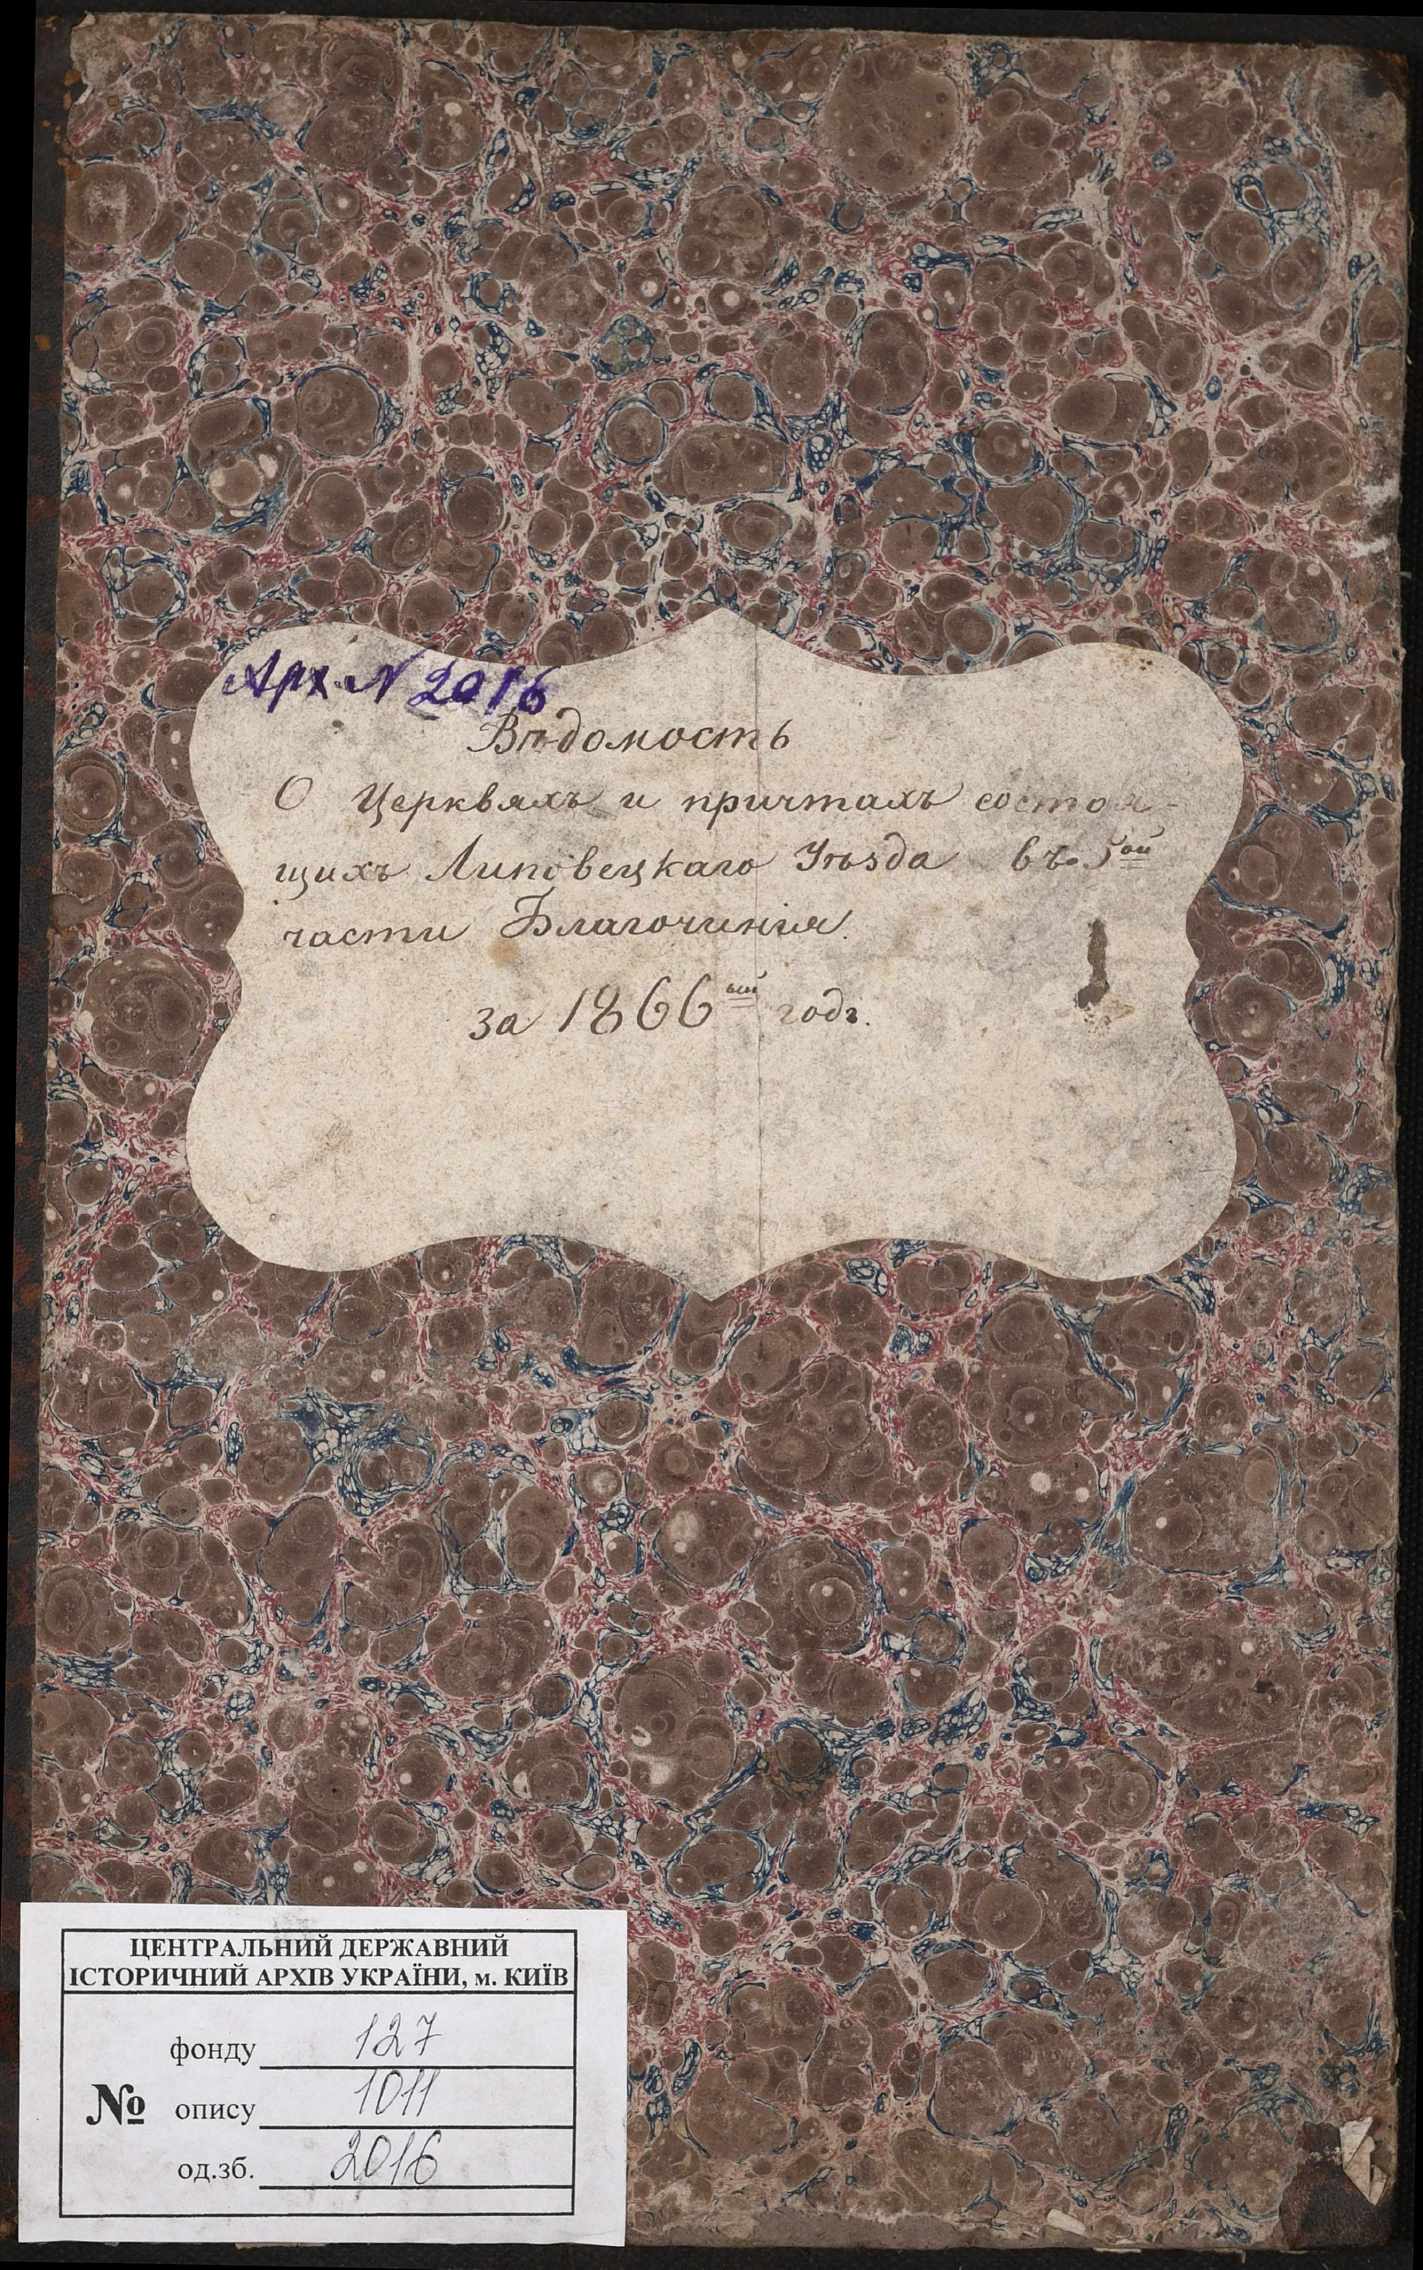 Арх. N 2016
Вѣдомость
О Церквяхъ и причтахъ состоя-
щихъ Липовецкаго Уѣзда въ 5ой
части Благочинія.
за 1866ый годъ.
ЦЕНТРАЛЬНИЙ ДЕРЖАВНИЙ
ІСТОРИЧНИЙ АРХІВ УКРАЇНИ, м. КИЇВ
фонду 127
№ опису 1011
од.зб. 2016